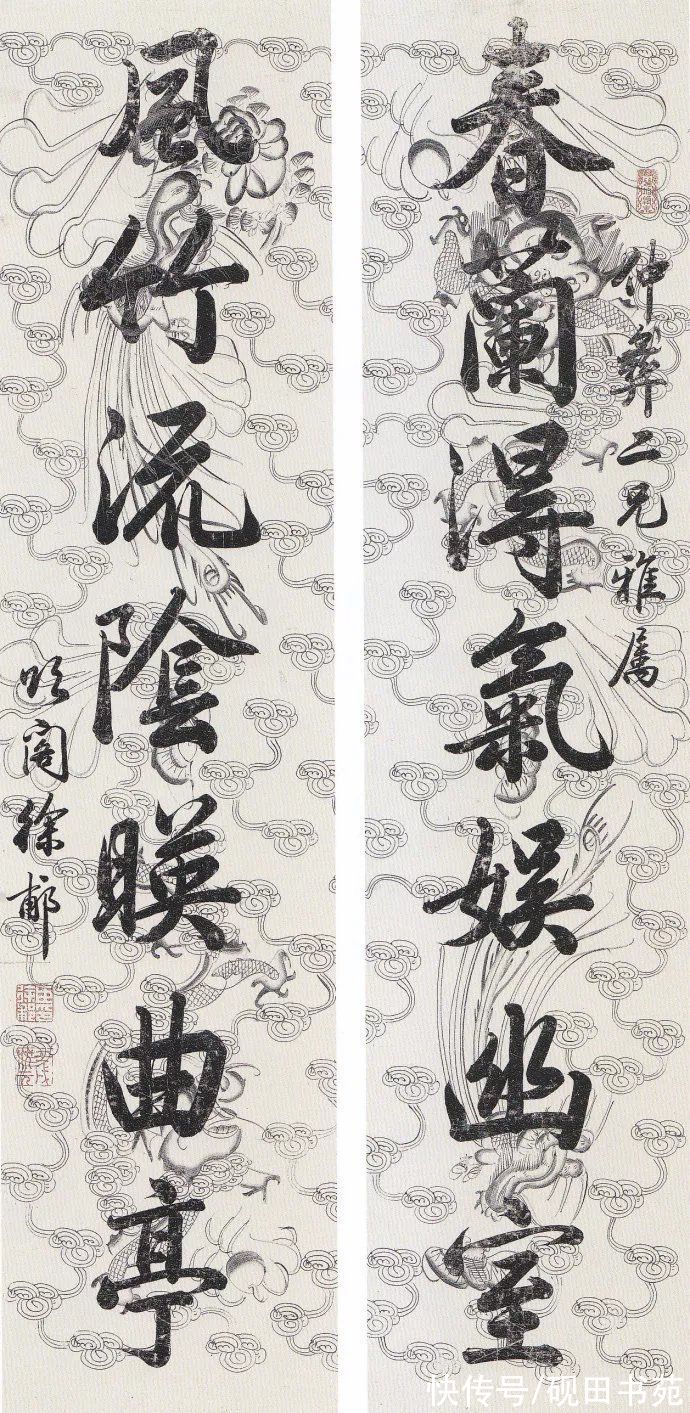 仲彝二兄雅属
春蘭得氣娛幽室
風竹流陰暎曲亭
頌閣徐郙
快传号/砚田书苑